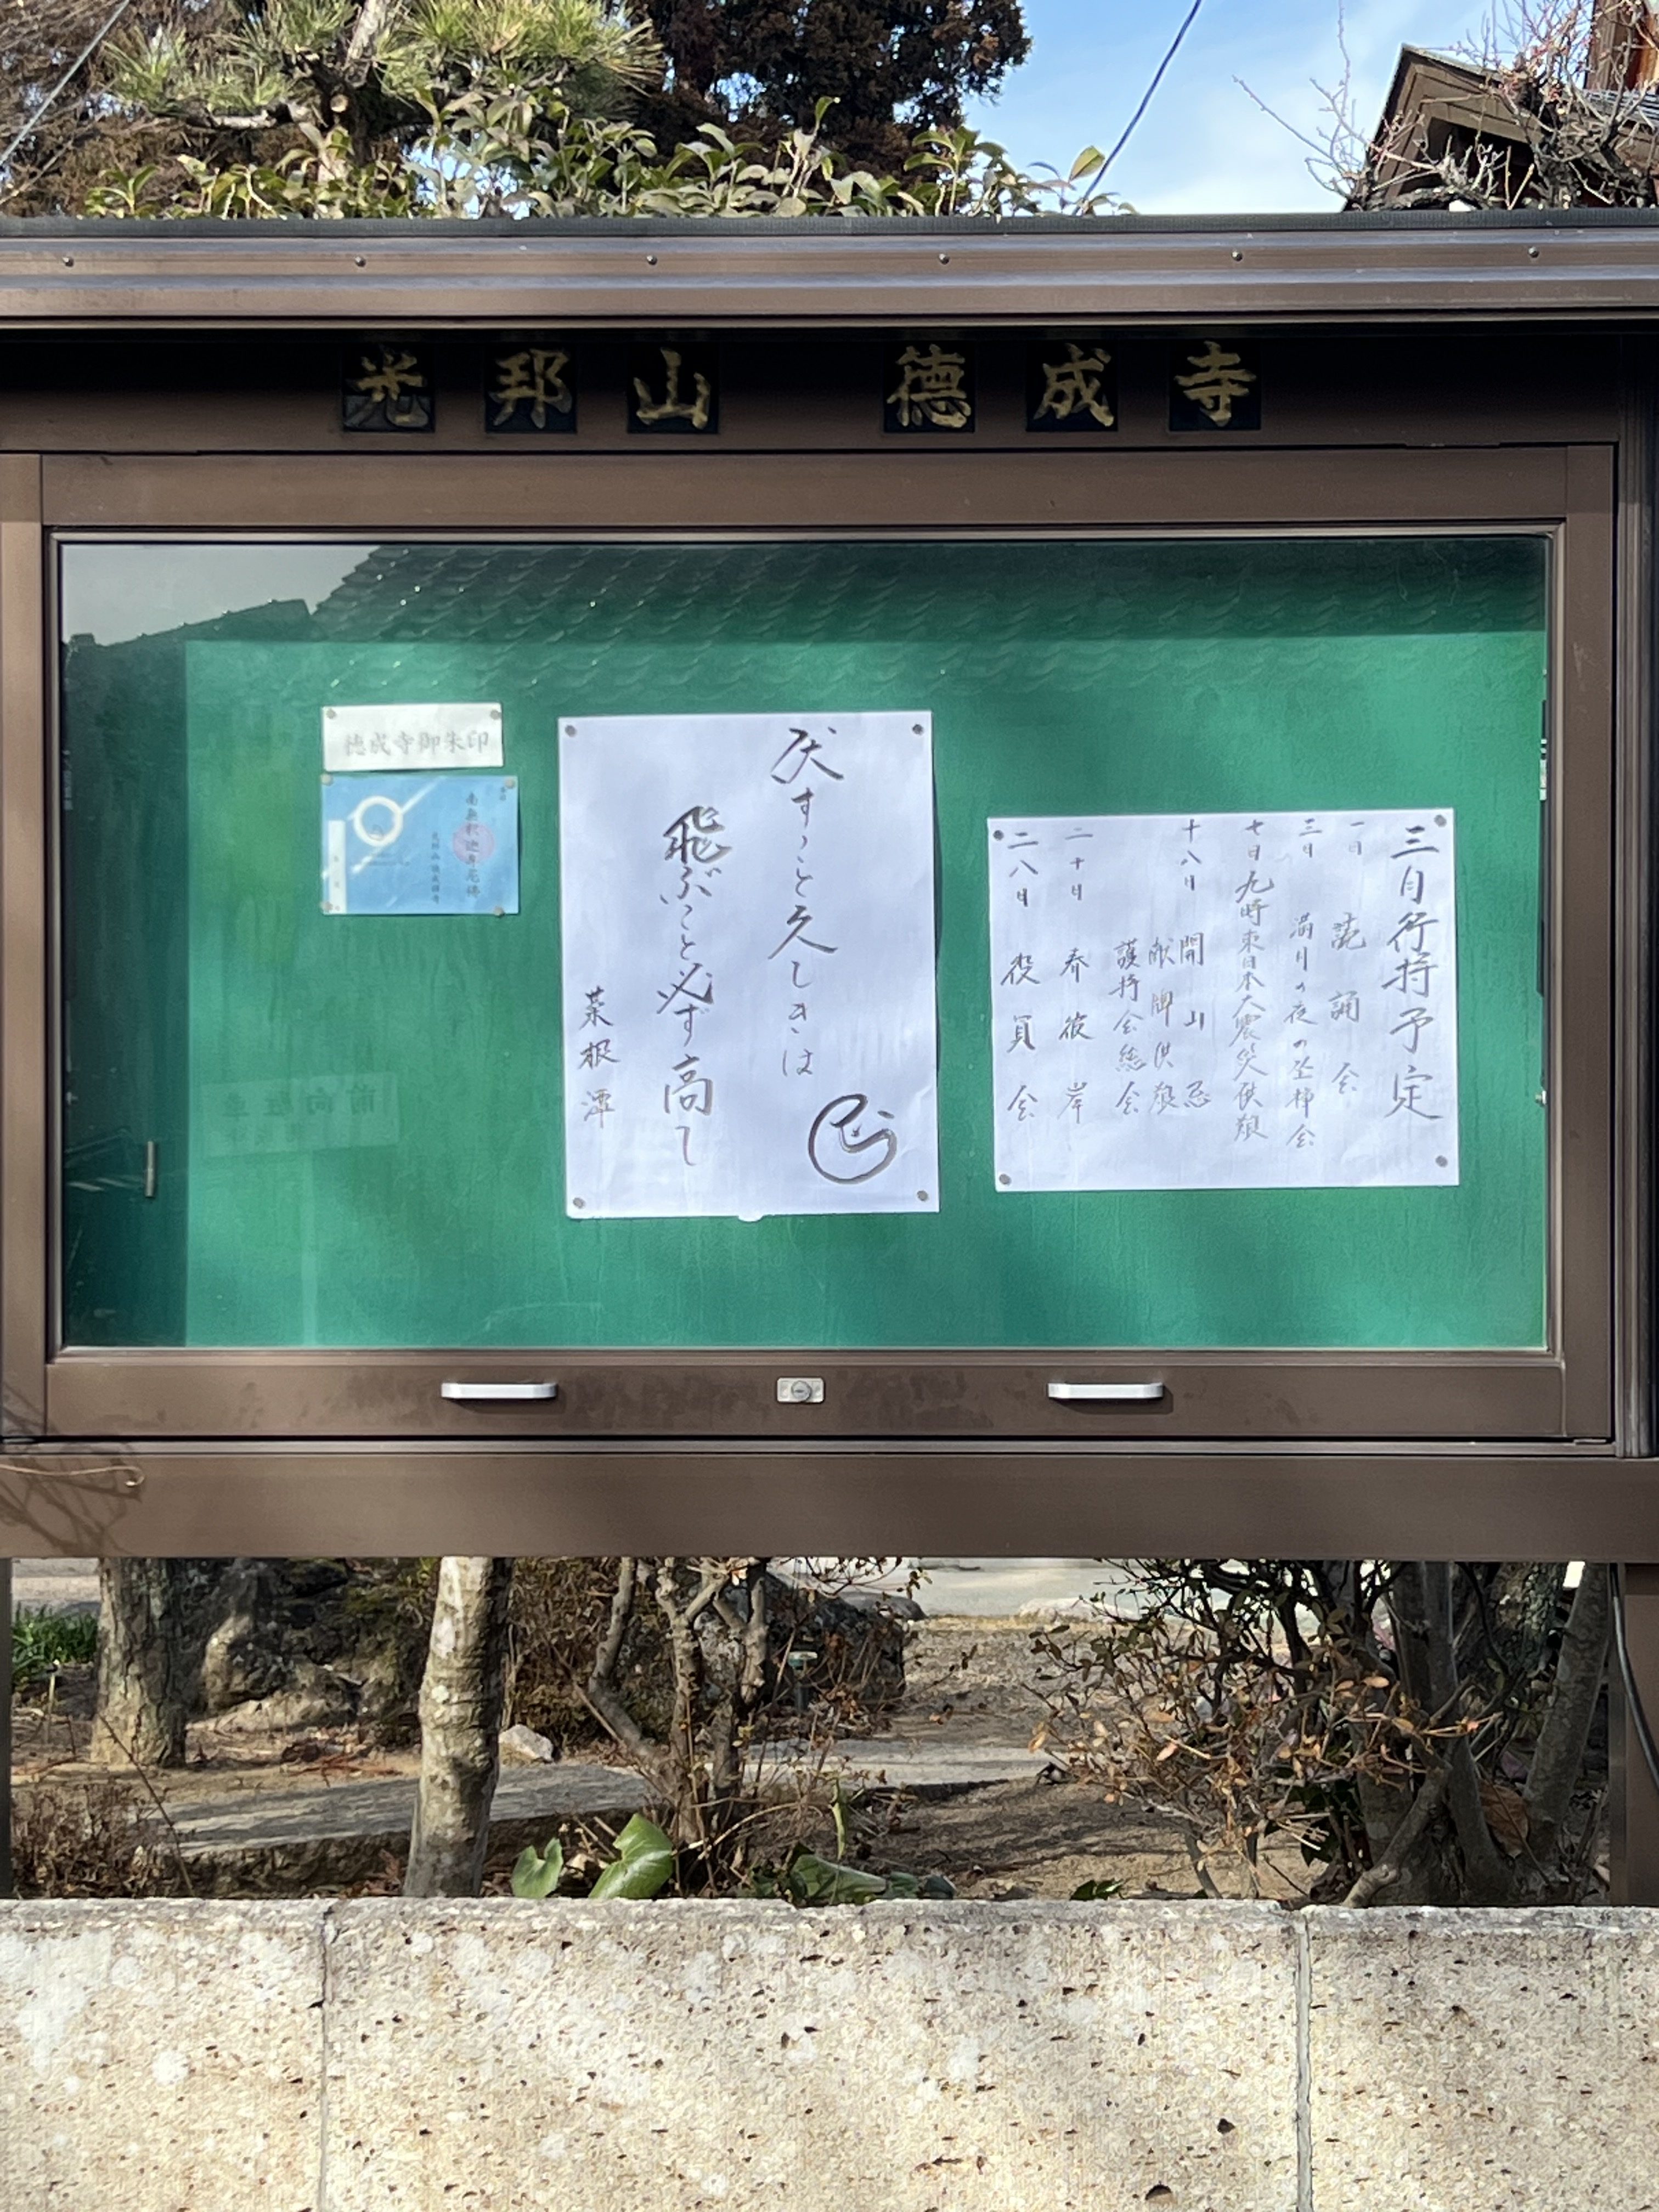 光邦山　徳成寺
三月行持予定
一日　読誦会
三日　満月の夜の坐禅会
七日九時東日本大震災供養
十八日　開山忌
献牌供養
護持会総会
二十日　春彼岸
二八日　役員会
伏すこと久しきは
飛ぶこと必ず高し
菜根譚
徳成寺御朱印
南無釈迦牟尼佛